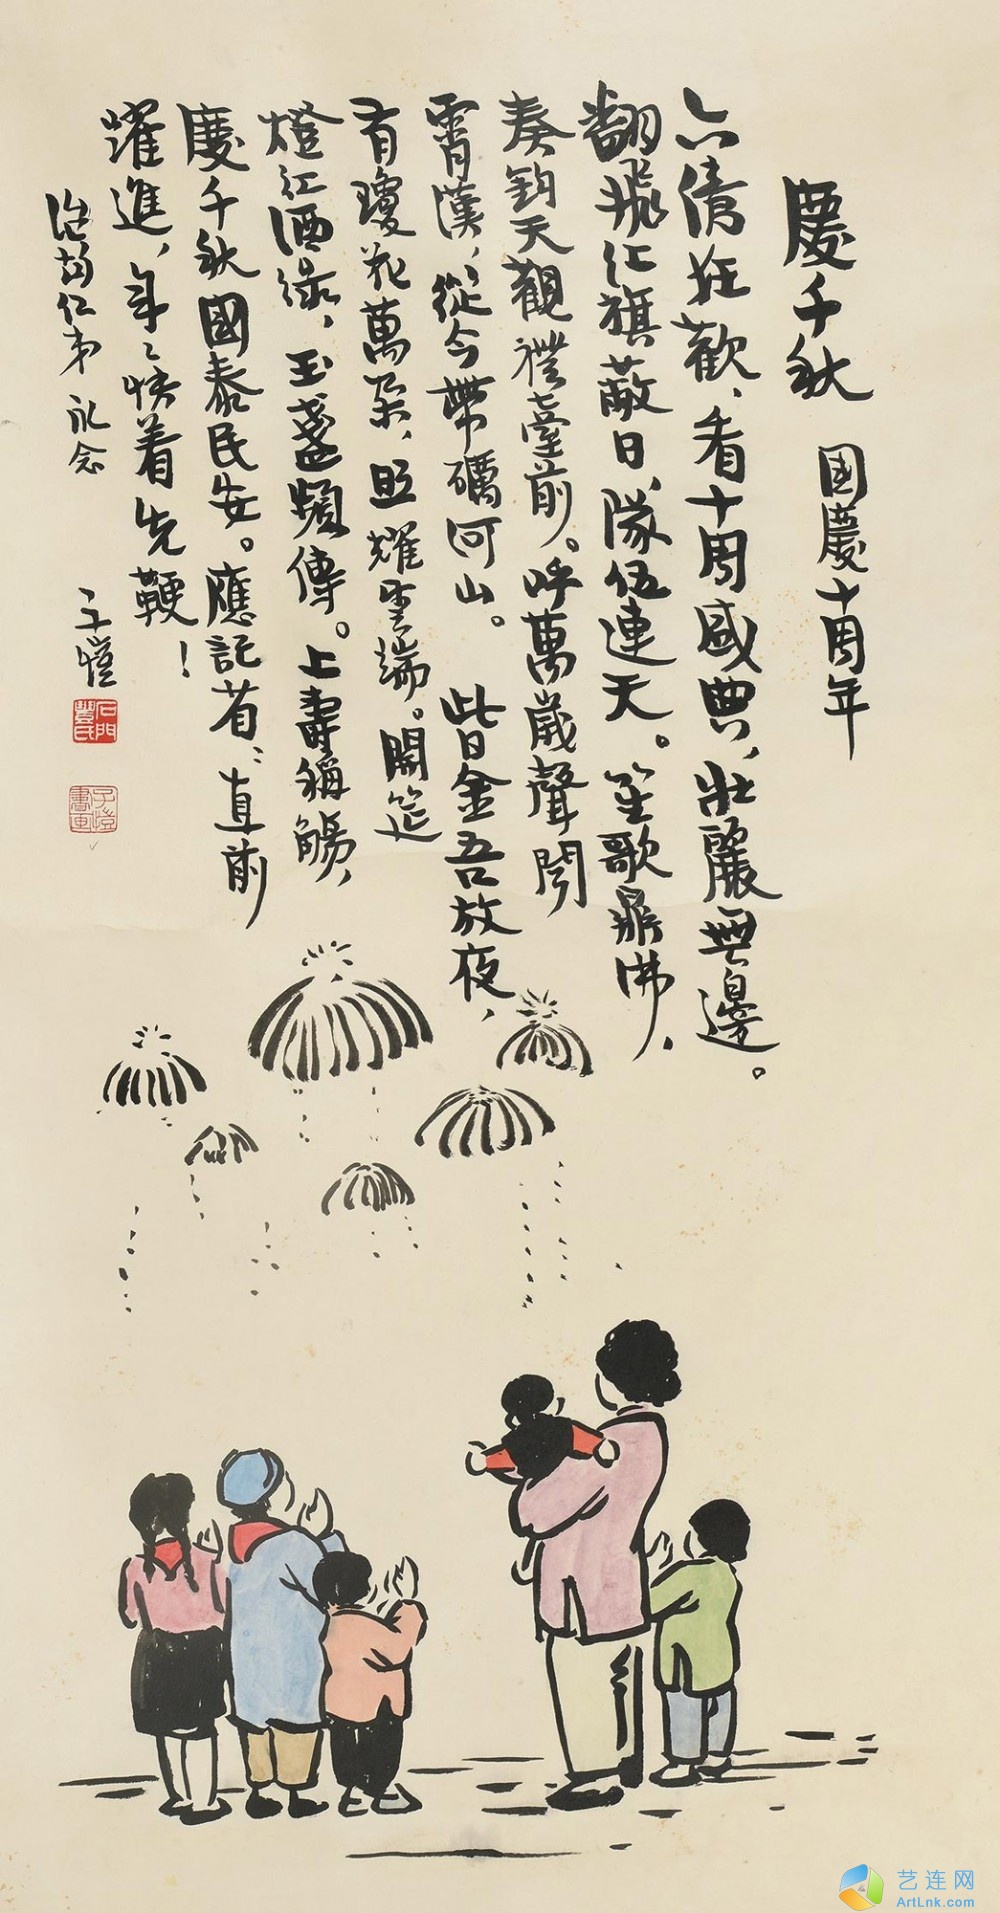 慶千秋 國慶十周年
六億狂歡、看十周盛典,壯麗無邊。
翻飛红旗蔽日,隊伍連天。笙歌鼎沸、
奏鈞天觀禮臺前。呼萬歲聲聞
霄漢,從今帶礪河山。 此日金吾放夜,
有瓊花萬朵,照耀雲端。開筵
燈红酒綠,玉盞頻傳。上壽稱觴,
慶千秋國泰民安。應記着:直前
躍進,年々快着先鞭!
治均仁弟 永念 子愷
石門豐氏
子愷書画
艺连网
ArtLnk.com